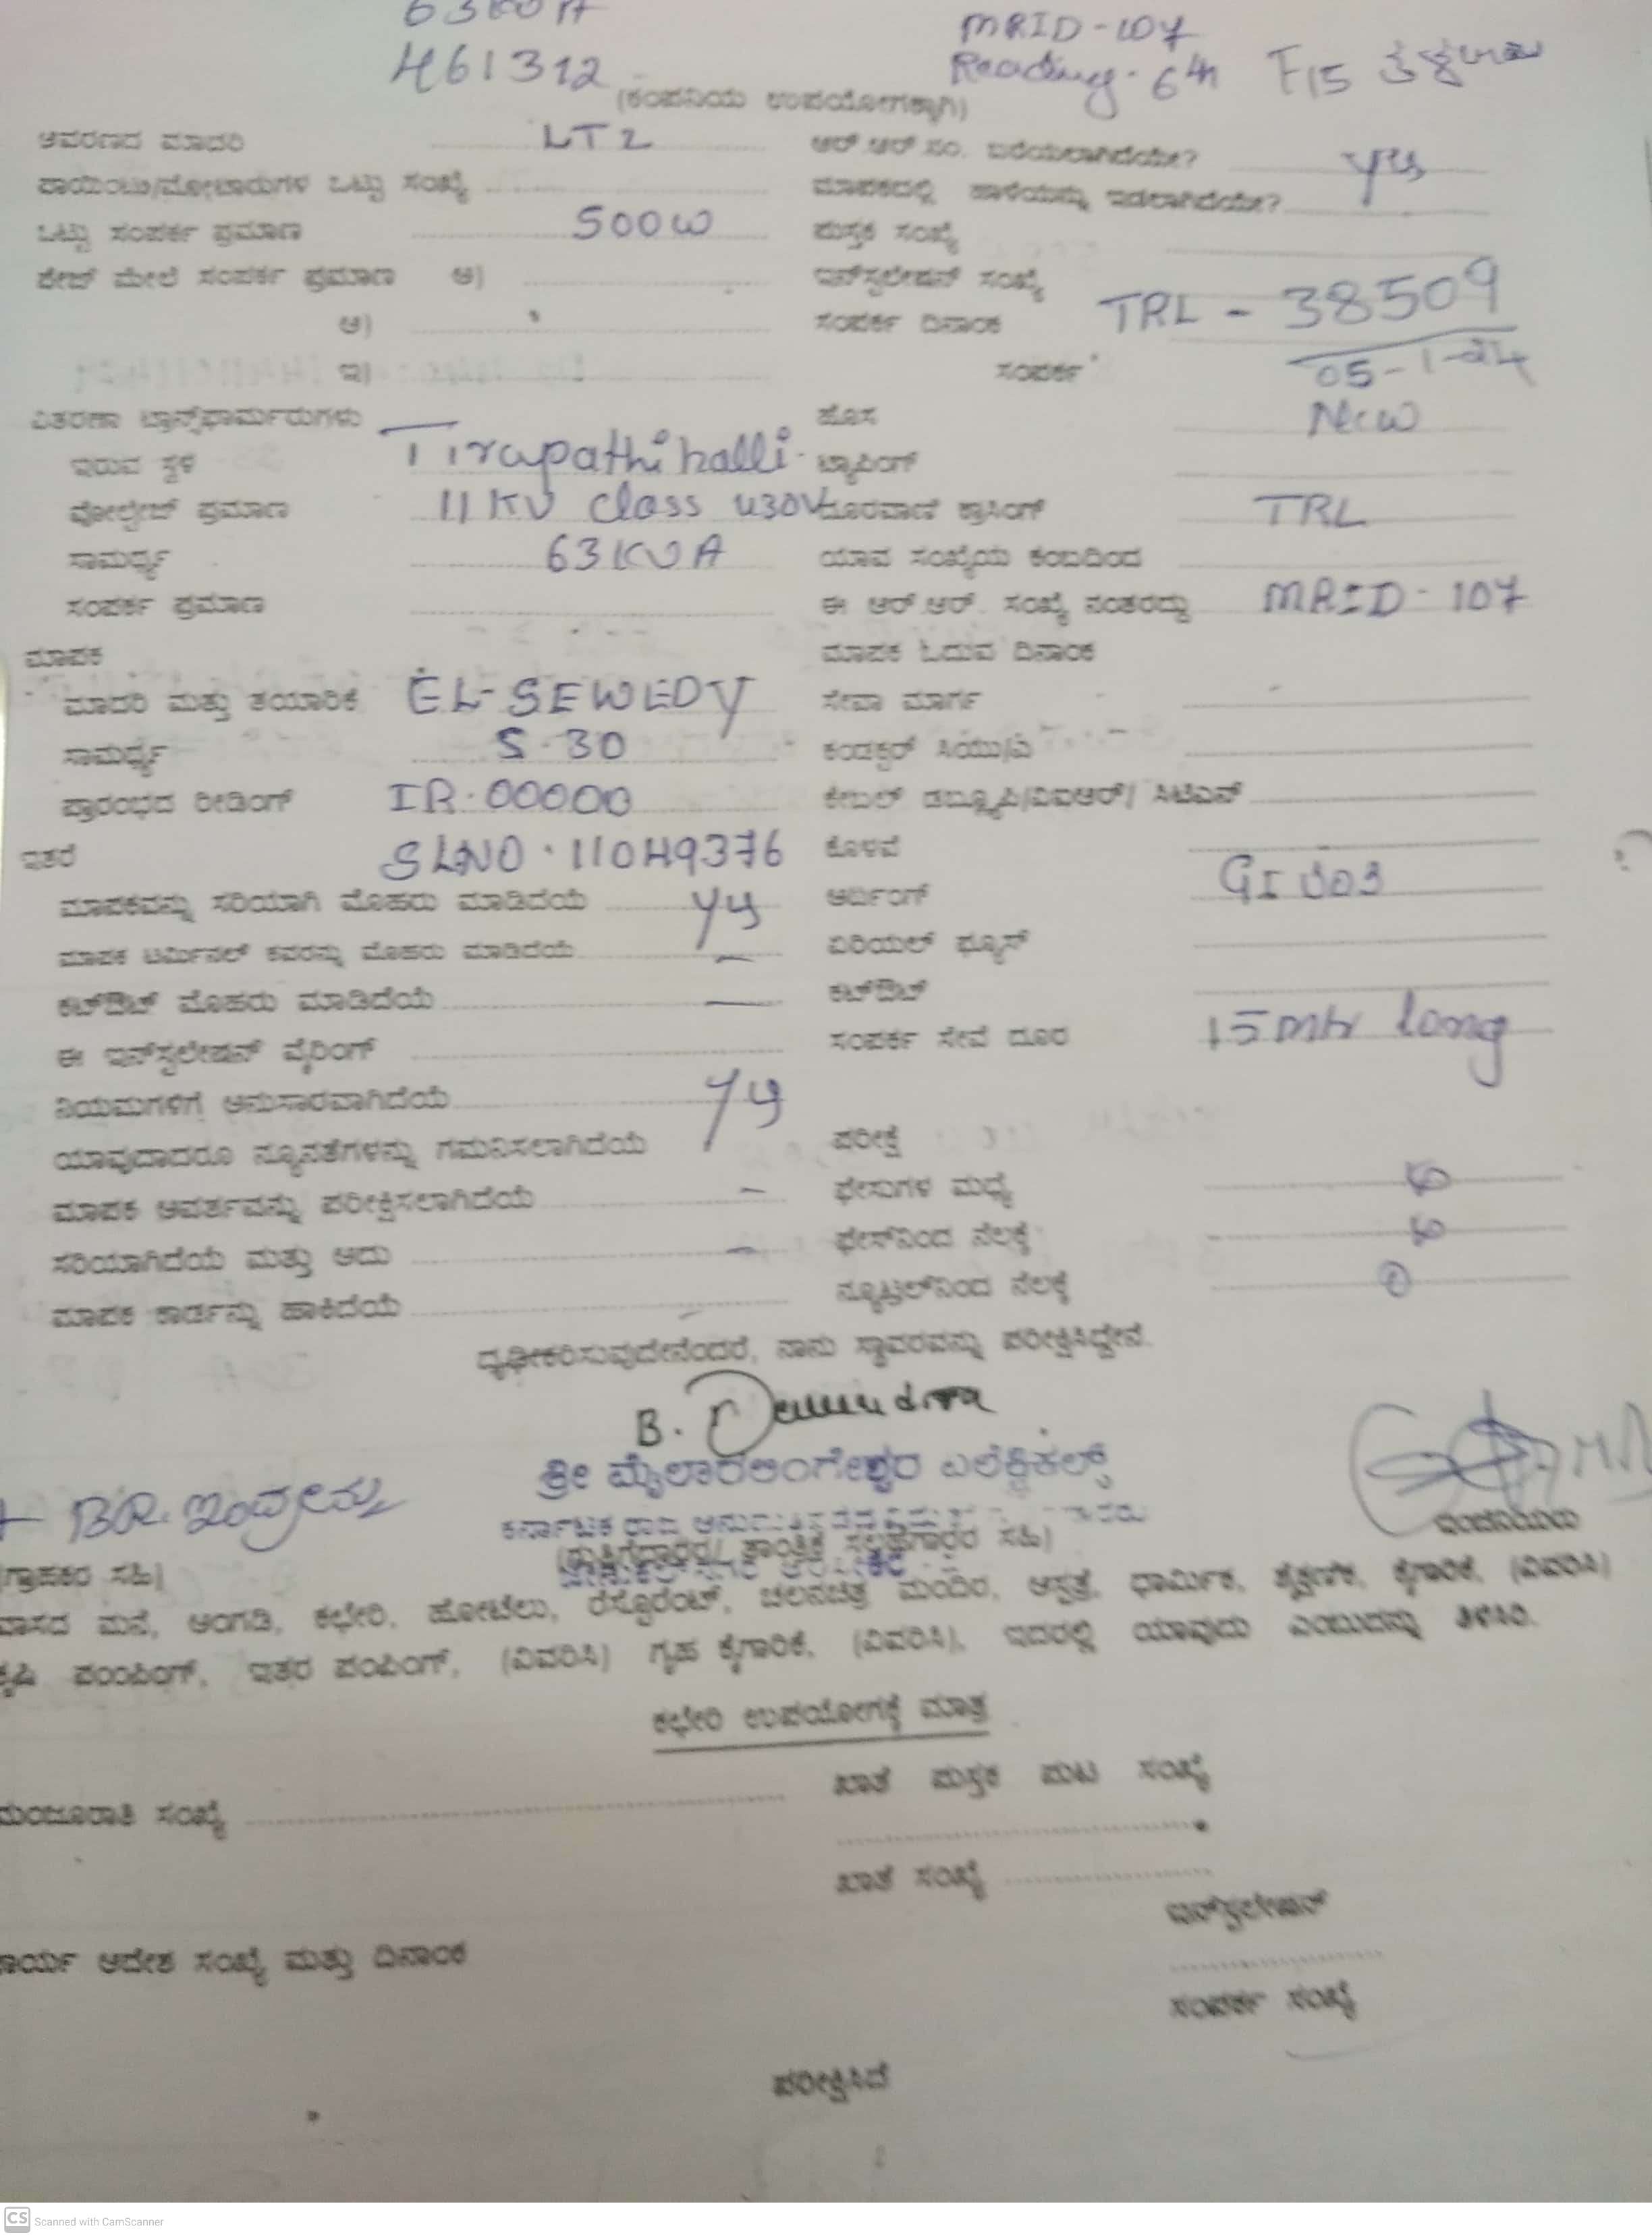 63KVA MRID-107
461312 Reading. 6th F15
(ಕಂಪನಿಯ ಉಪಯೋಗಕ್ಕಾಗಿ)
ಆವರಣದ ಮಾದರಿ LT2 ಆರ್.ಆರ್.ಸಂ. ಬರೆಯಲಾಗಿದೆಯೇ? yes
ಪಾಯಿಂಟು/ಮೋಟಾರುಗಳ ಒಟ್ಟು ಸಂಖ್ಯೆ ಮಾಪಕದಲ್ಲಿ ಹಾಳೆಯನ್ನು ಇಡಲಾಗಿದೆಯೇ?
ಒಟ್ಟು ಸಂಪರ್ಕ ಪ್ರಮಾಣ 500W ಪುಸ್ತಕ ಸಂಖ್ಯೆ
ಪೇಜ್ ಮೇಲೆ ಸಂಪರ್ಕ ಪ್ರಮಾಣ ಅ) ಇನ್‌ಸ್ಟಲೇಷನ್ ಸಂಖ್ಯೆ TRL - 38509
ಆ) ಸಂಪರ್ಕ ದಿನಾಂಕ 05-1-24
ಇ) ಸಂಪರ್ಕ
ವಿತರಣಾ ಟ್ರಾನ್ಸ್‌ಫಾರ್ಮರುಗಳು ಹೊಸ New
ಇರುವ ಸ್ಥಳ Tirupathihalli ಟ್ಯಾಪಿಂಗ್
ವೋಲ್ಟೇಜ್ ಪ್ರಮಾಣ 11KV class 430V ದೂರವಾಣಿ ಕ್ರಾಸಿಂಗ್ TRL
ಸಾಮರ್ಥ್ಯ 63KVA ಯಾವ ಸಂಖ್ಯೆಯ ಕಂಬದಿಂದ
ಸಂಪರ್ಕ ಪ್ರಮಾಣ ಈ ಆರ್.ಆರ್. ಸಂಖ್ಯೆ ನಂತರದ್ದು MRID - 107
ಮಾಪಕ ಮಾಪಕ ಓದುವ ದಿನಾಂಕ
ಮಾದರಿ ಮತ್ತು ತಯಾರಿಕೆ EL-SEWEDY ಸೇವಾ ಮಾರ್ಗ
ಸಾಮರ್ಥ್ಯ 5-30 ಕಂಡಕ್ಟರ್ ಸಿಯು/ಎ
ಪ್ರಾರಂಭದ ರೀಡಿಂಗ್ IR-00000 ಕೇಬಲ್ ಡಬ್ಲ್ಯೂಪಿ/ವಿಐಆರ್/ ಸಿಟಿಎಸ್
ಇತರೆ SLNO. 11049376 ಕೊಳವೆ
ಮಾಪಕವನ್ನು ಸರಿಯಾಗಿ ಮೊಹರು ಮಾಡಿದೆಯೆ yes ಅರ್ಥಿಂಗ್ GI
ಮಾಪಕ ಟರ್ಮಿನಲ್ ಕವರನ್ನು ಮೊಹರು ಮಾಡಿದೆಯೆ — ಏರಿಯಲ್ ಫ್ಯೂಸ್
ಕಟ್‌ಔಟ್ ಮೊಹರು ಮಾಡಿದೆಯೆ — ಕಟ್‌ಔಟ್
ಈ ಇನ್‌ಸ್ಟಲೇಷನ್ ವೈರಿಂಗ್ ಸಂಪರ್ಕ ಸೇವೆ ದೂರ 15mtr long
ನಿಯಮಗಳಿಗೆ ಅನುಸಾರವಾಗಿದೆಯೆ yes
ಯಾವುದಾದರೂ ನ್ಯೂನತೆಗಳನ್ನು ಗಮನಿಸಲಾಗಿದೆಯೆ ಪರೀಕ್ಷೆ
ಮಾಪಕ ಆವರ್ತವನ್ನು ಪರೀಕ್ಷಿಸಲಾಗಿದೆಯೆ — ಫೇಸುಗಳ ಮಧ್ಯೆ
ಸರಿಯಾಗಿದೆಯೆ ಮತ್ತು ಅದು — ಫೇಸ್‌ನಿಂದ ನೆಲಕ್ಕೆ
ಮಾಪಕ ಕಾರ್ಡನ್ನು ಹಾಕಿದೆಯೆ — ನ್ಯೂಟ್ರಲ್‌ನಿಂದ ನೆಲಕ್ಕೆ
ದೃಢೀಕರಿಸುವುದೇನೆಂದರೆ, ನಾನು ಸ್ಥಾವರವನ್ನು ಪರೀಕ್ಷಿಸಿದ್ದೇನೆ.
ಶ್ರೀ ಮೈಲಾರಲಿಂಗೇಶ್ವರ ಎಲೆಕ್ಟ್ರಿಕಲ್ಸ್
BR. ಇಂದ್ರಮ್ಮ ಕರ್ನಾಟಕ ರಾಜ್ಯ
(ಗ್ರಾಹಕರ ಸಹಿ) (ಗುತ್ತಿಗೆದಾರರ/ ತಾಂತ್ರಿಕ ಸಲಹೆಗಾರರ ಸಹಿ)
ವಾಸದ ಮನೆ, ಅಂಗಡಿ, ಕಛೇರಿ, ಹೋಟೆಲು, ರೆಸ್ಟೊರೆಂಟ್, ಚಲನಚಿತ್ರ ಮಂದಿರ, ಆಸ್ಪತ್ರೆ, ಧಾರ್ಮಿಕ, ಶೈಕ್ಷಣಿಕ, ಕೈಗಾರಿಕೆ, (ವಿವರಿಸಿ)
ಕೃಷಿ ಪಂಪಿಂಗ್, ಇತರ ಪಂಪಿಂಗ್, (ವಿವರಿಸಿ) ಗೃಹ ಕೈಗಾರಿಕೆ, (ವಿವರಿಸಿ), ಇದರಲ್ಲಿ ಯಾವುದು ಎಂಬುದನ್ನು ತಿಳಿಸಿರಿ.
ಕಛೇರಿ ಉಪಯೋಗಕ್ಕೆ ಮಾತ್ರ
ಮಂಜೂರಾತಿ ಸಂಖ್ಯೆ ಖಾತೆ ಪುಸ್ತಕ ಪುಟ ಸಂಖ್ಯೆ
ಖಾತೆ ಸಂಖ್ಯೆ
ಇನ್‌ಸ್ಟಲೇಷನ್
ಕಾರ್ಯ ಆದೇಶ ಸಂಖ್ಯೆ ಮತ್ತು ದಿನಾಂಕ
ಸಂಪರ್ಕ ಸಂಖ್ಯೆ
ಪರೀಕ್ಷಿಸಿದೆ
CS Scanned with CamScanner